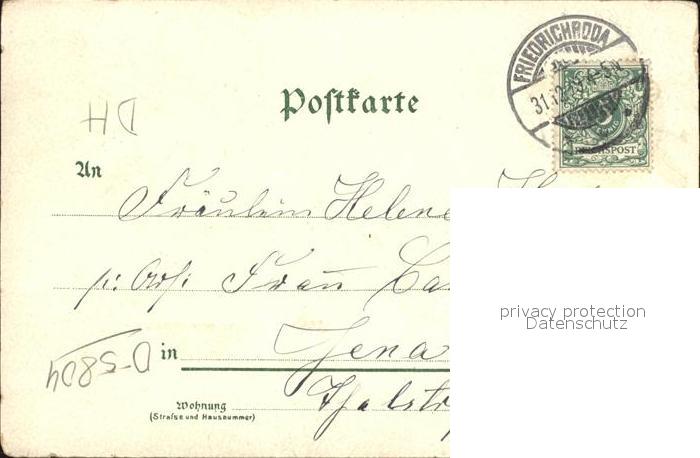 FRIEDRICHRODA
REICHSPOST
Postkarte
DH
An
Fräulein Helene
p. Adr. Frau
D-5804
in Jena
Wohnung
(Straſse und Hausnummer)
privacy protection
Datenschutz